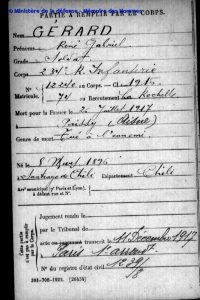 Ministère de la défense - Mémoire des hommes
PARTIE À REMPLIR PAR LE CORPS.
Nom GÉRARD
Prénoms René Gabriel
Grade Soldat
Corps 234e R. Infanterie
N° 12248 au Corps. — Cl. 1916.
Matricule. 74 au Recrutement La Rochelle
Mort pour la France le 26 juillet 1917
à Paissy (Aisne)
Genre de mort Tué à l'ennemi
Né le 8 Mars 1896
à Santiago de Chili Département Chili
Arrt municipal (pr Paris et Lyon),
à défaut rue et N°.
Jugement rendu le
par le Tribunal de
acte ou jugement transcrit le 11 Décembre 1917
à Paris 1er arrondt
N° du registre d'état civil